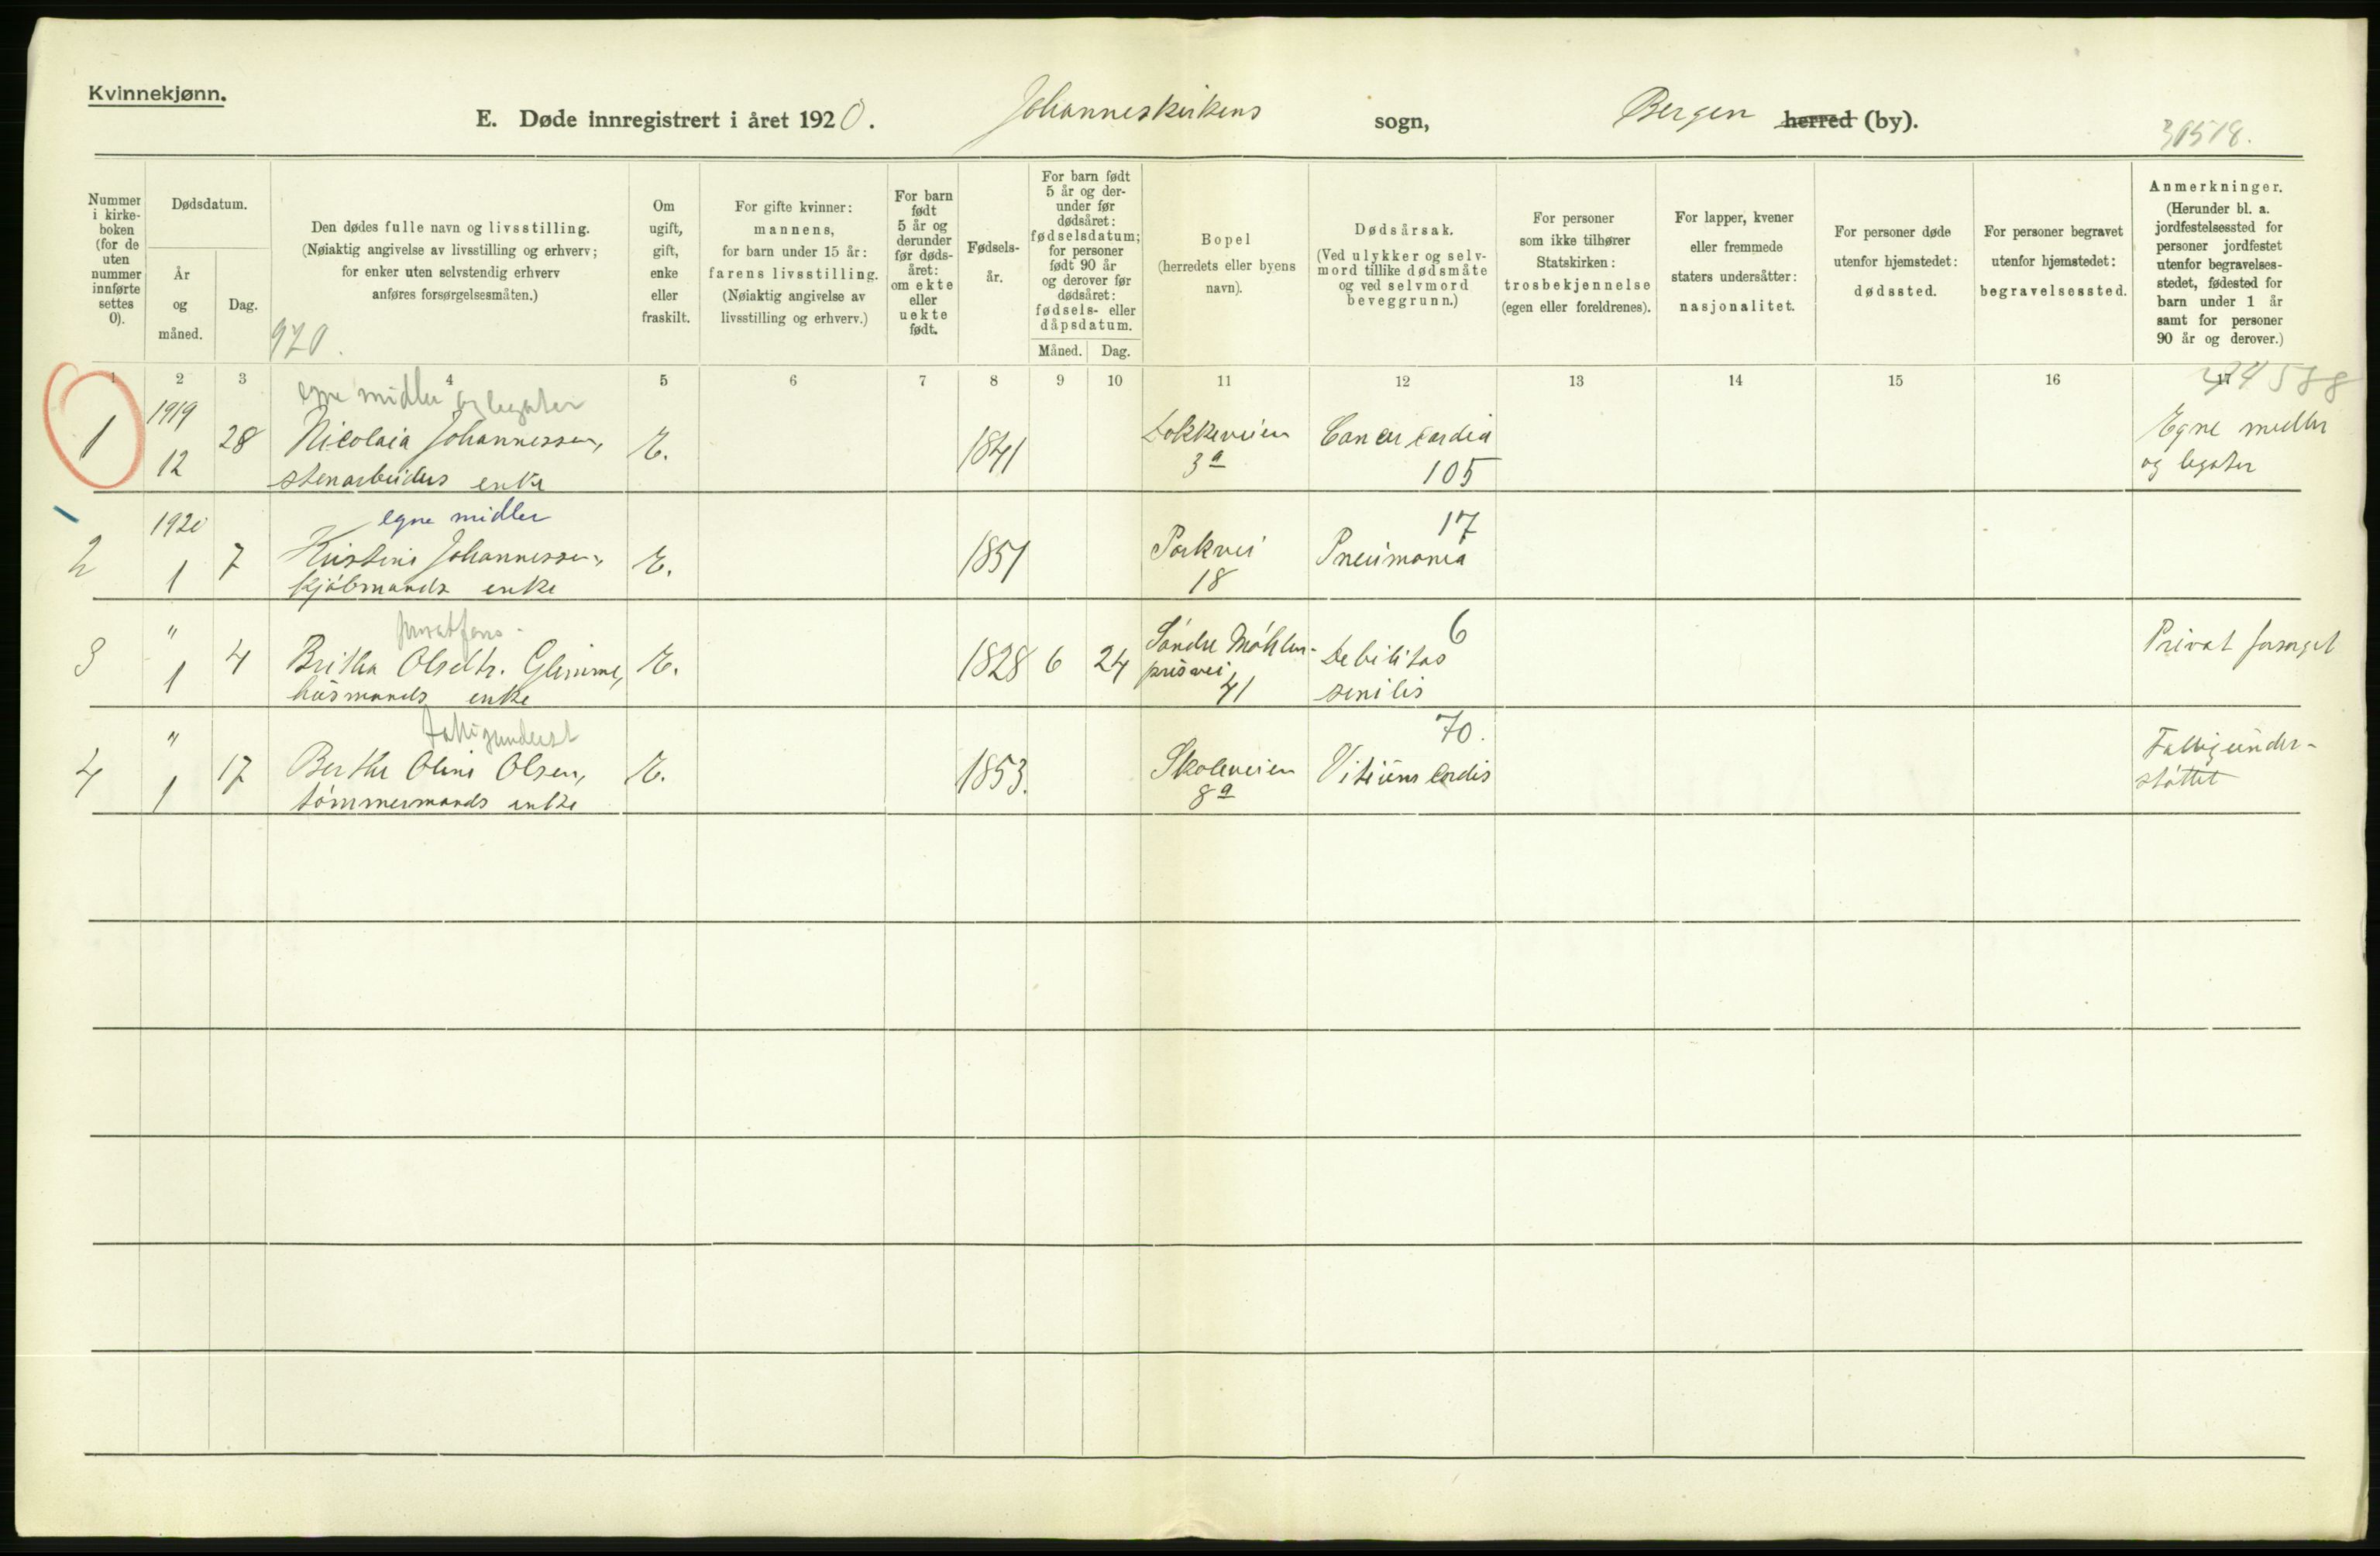 Kvinnekjønn.
E. Døde innregistrert i året 1920. Johanneskirkens sogn, Bergen herred (by).
30518.
Nummer i kirke- boken (for de uten nummer innførte settes 0).
Dødsdatum.
År og måned.
Dag.
Den dødes fulle navn og livsstilling.
(Nøiaktig angivelse av livsstilling og erhverv;
for enker uten selvstendig erhverv
anføres forsørgelsesmåten.)
920.
Om ugift, gift, enke eller fraskilt.
For gifte kvinner:
mannens,
for barn under 15 år:
farens livsstilling.
(Nøiaktig angivelse av
livsstilling og erhverv.)
For barn født 5 år og derunder før døds- året: om ekte eller uekte født.
Fødsels- år.
For barn født 5 år og der- under før dødsåret: fødselsdatum; for personer født 90 år og derover før dødsåret: fødsels- eller dåpsdatum.
Måned. Dag.
Bopel
(herredets eller byens
navn).
Dødsårsak.
(Ved ulykker og selv-
mord tillike dødsmåte
og ved selvmord
beveggrunn.)
For personer
som ikke tilhører
Statskirken:
trosbekjennelse
(egen eller foreldrenes).
For lapper, kvener
eller fremmede
staters undersåtter:
nasjonalitet.
For personer døde
utenfor hjemstedet:
dødssted.
For personer begravet
utenfor hjemstedet:
begravelsessted.
Anmerkninger.
(Herunder bl. a.
jordfestelsessted for
personer jordfestet
utenfor begravelses-
stedet, fødested for
barn under 1 år
samt for personer
90 år og derover.)
1 2 3 4 5 6 7 8 9 10 11 12 13 14 15 16 17
egne midler og legater
1 1919 12 28 Nicolaia Johannessen, E. 1841 Lokkeveien 3a Cancer cardia 105 Egne midler
stenarbeiders enke og legater
egne midler
2 1920 1 7 Kristine Johannessen, E. 1851 Parkvei 18 Pneumonia 17
kjøbmands enke
privat fors.
3 " 1 4 Britha Olsdtr. Glimme, E. 1828 6 24 Søndre Møhlen- Debilitas 6 Privat forsørget
husmands enke prisvei 41 senilis
Fattigunderst
4 " 1 17 Berthe Oline Olsen, E. 1853. Skoleveien 8a Vitium cordis 70. Fattigunder-
tømmermands enke støttet